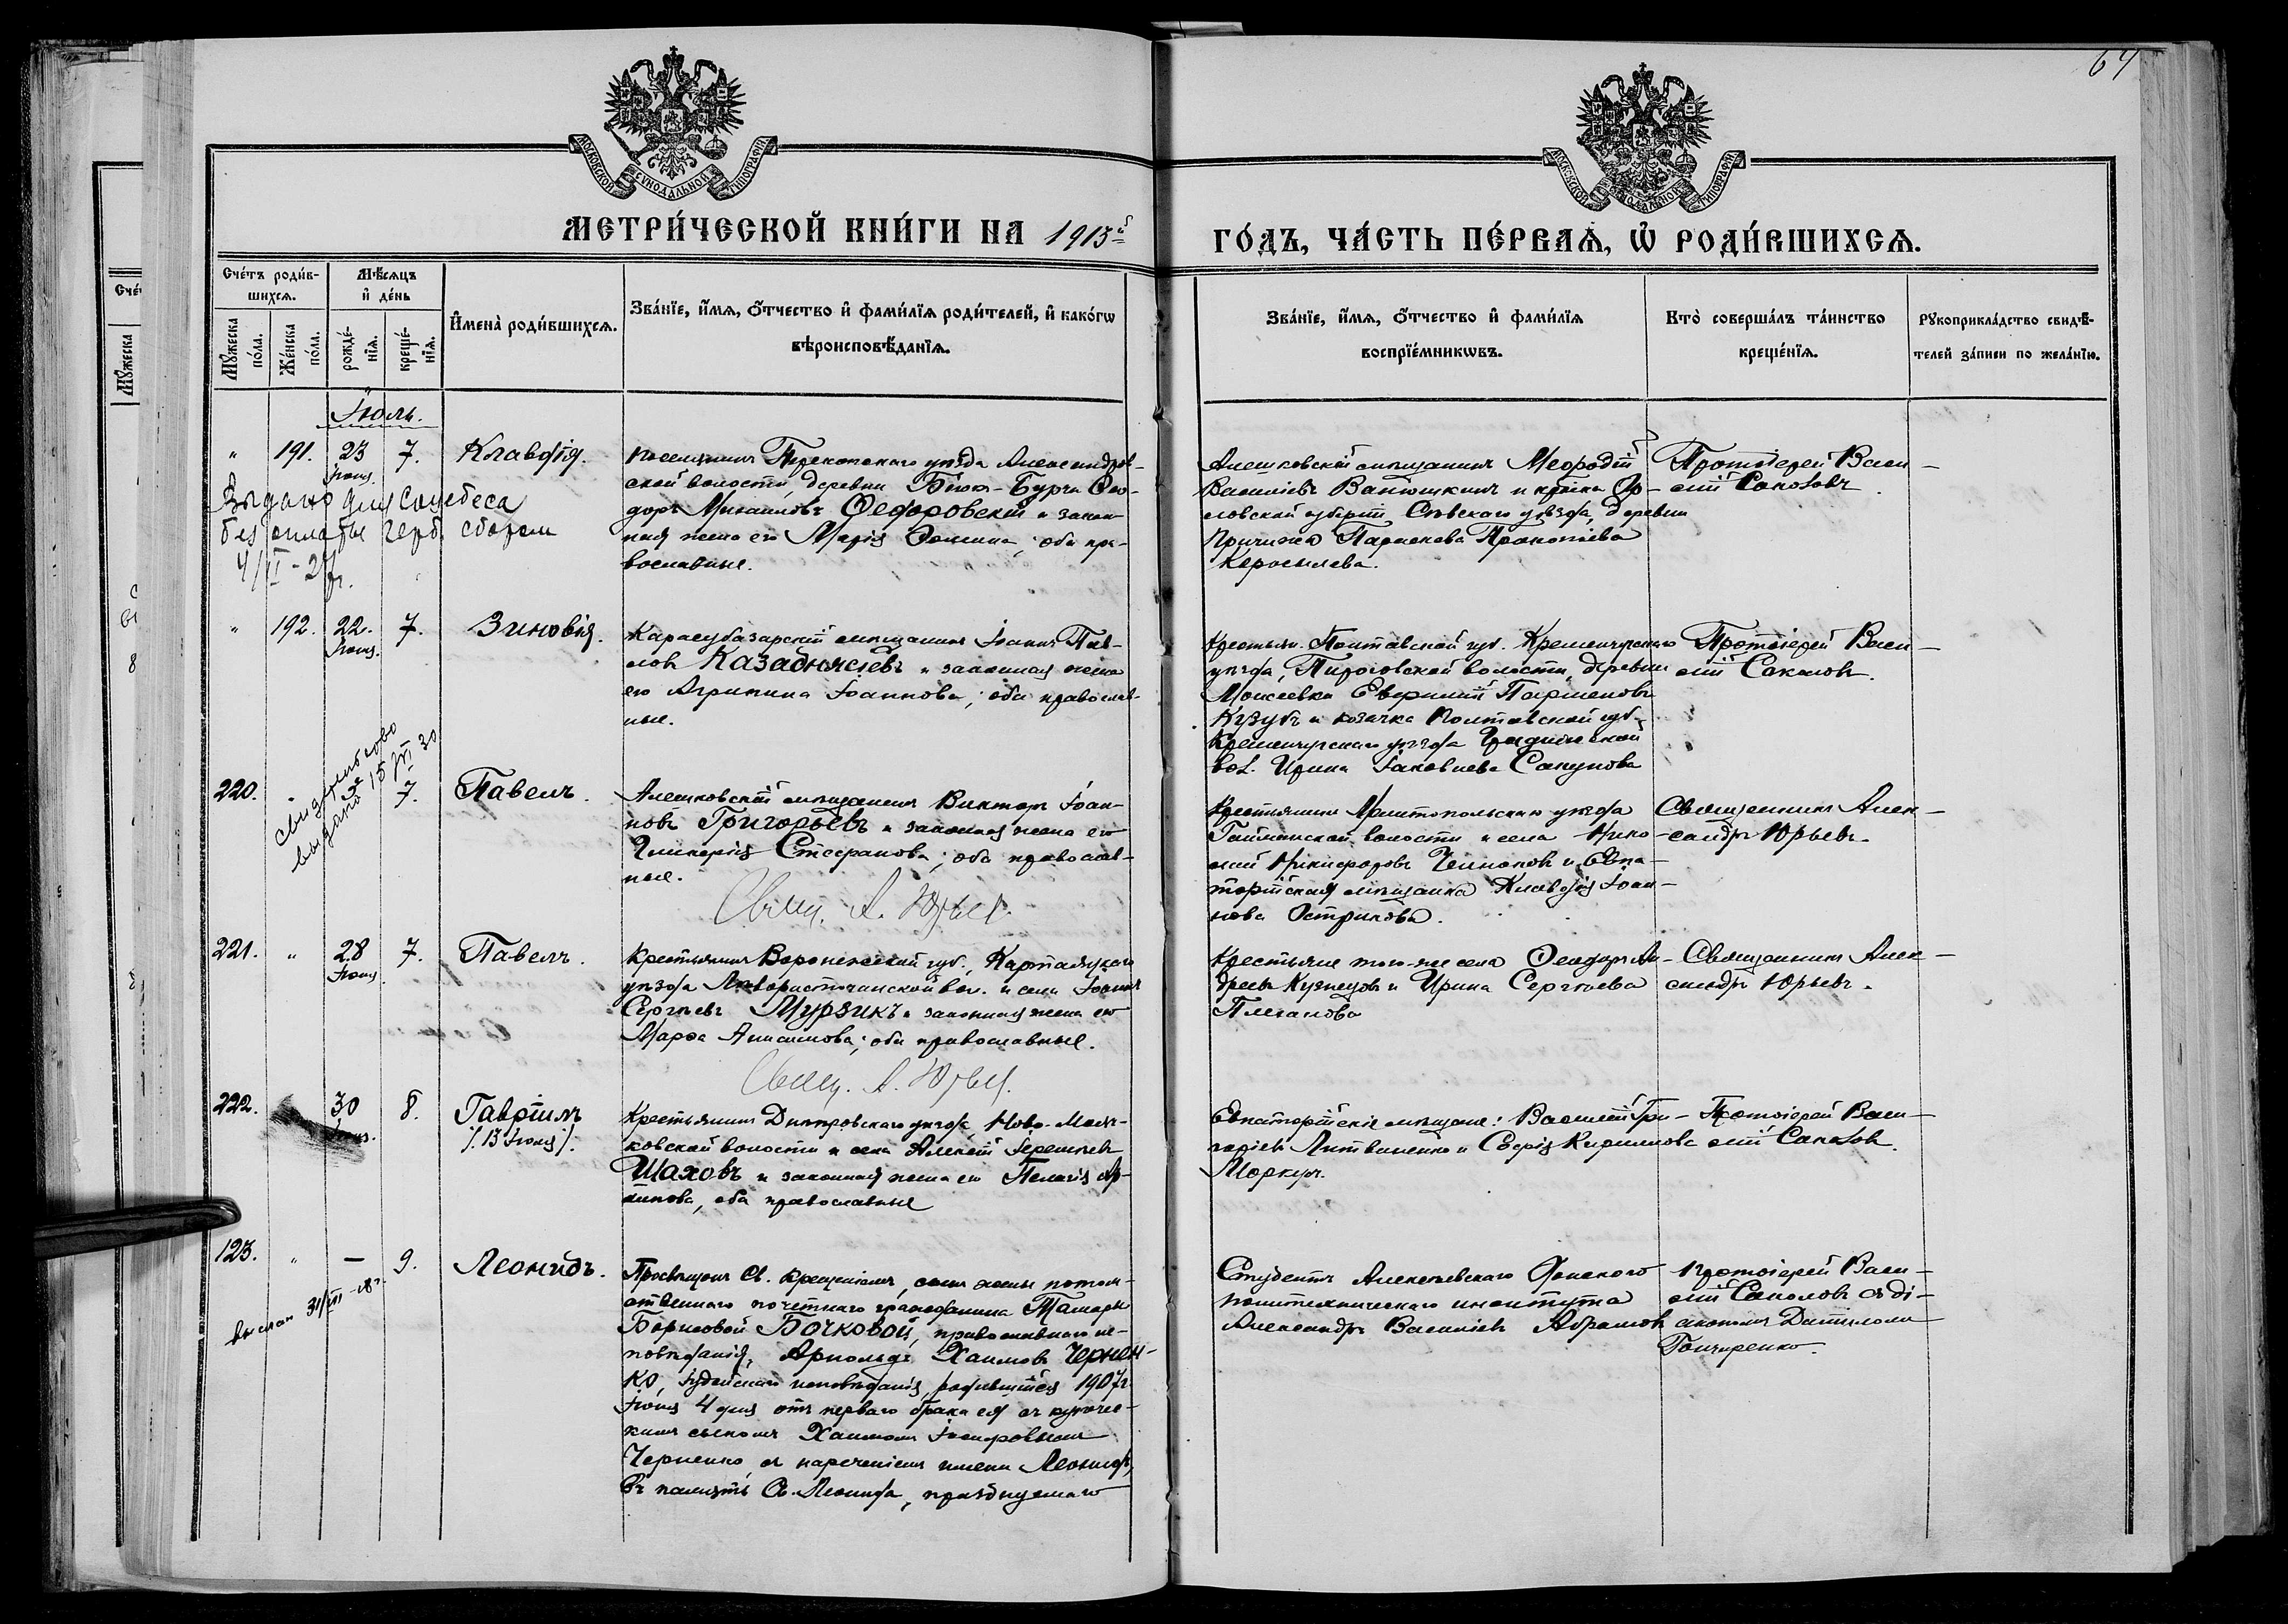 64
МОСКОВСКОЙ СѴНОДАЛЬНОЙ ТИПОГРАФІИ
МОСКОВСКОЙ СѴНОДАЛЬНОЙ ТИПОГРАФІИ
МЕТРИ́ЧЕСКОЙ КНИ́ГИ НА 1913й
ГО́ДЪ, ЧА́СТЬ ПЕ́РВАЯ, Ѡ РОДИ́ВШИХСЯ.
Сче́тъ роди́в-
шихся.
Мѣ́сяцъ
и де́нь
Му́жеска
по́ла.
Же́нска
по́ла.
рожде́-
нія.
креще́-
нія.
Имена̀ роди́вшихся.
Зва́ніе, и́мя, о́тчество и фами́лія роди́телей, и како́гѡ
вѣроисповѣ́данія.
Зва́ніе, и́мя, о́тчество и фами́лія
воспріе́мникѡвъ.
Кто̀ соверша́лъ та́инство
креще́нія.
Рукоприкла́дство свидѣ́-
телей за́писи по жела́нію.
Іюль.
" 191. 23 7. Клавдія.
Іюня.
Выдано для Соцебеса
без оплаты герб. сбором
поселянинъ Перекопскаго уѣзда Александров-
ской волости, деревни Бію́к-Бурчи Ѳео-
доръ Михаиловъ Ѳедоровскій и закон-
ная жена его Марія Ѳомина; оба пра-
вославные.
Алешковскій мѣщанинъ Меѳодій
Василіевъ Ванюшкинъ и крᵗⁿка Ор-
ловской губерніи Сѣвскаго уѣзда, деревни
Параскева Прокопіева
Протоіерей Васи-
лій Соколовъ.
" 192. 22. 7. Зиновія.
Іюня.
Карасубазарскій мѣщанинъ Іоаннъ Пав-
ловъ и законная жена
его Агрипина Іоаннова; оба православ-
ные.
Крестьян. Полтавской губ. Кременчугскаго
уѣзда, волости, деревни
Моисеевки Евфимій Парменовъ
Кузубъ и козачка Полтавской губ.
Кременчугскаго уѣзда
вол. Ирина Іаковлева Сакунова
Протоіерей Васи-
лій Соколовъ.
свидѣтельство
выдано 15 VII 30
220. " 2 7. Павелъ.
Алешковскій мѣщанинъ Викторъ Іоан-
новъ Григорьевъ и законная жена его
Гликерія Стефанова; оба православ-
ные.
Свящ. А. Юрьев.
Крестьянинъ Мелитопольскаго уѣзда
волости и села Нико-
лай Никифоровъ и Евпа-
торійская мѣщанка Клавдія Іоан-
нова Острикова.
Священникъ Алек-
сандръ Юрьевъ.
221. " 28 7. Павелъ.
Іюня.
Крестьянинъ Воронежской губ.,
уѣзда вол. и села Іоаннъ
Сергѣевъ Мурзикъ и законная жена его
Марѳа Анисимова; оба православные.
Свящ. А. Юрьев.
Крестьяне того-же села Ѳеодоръ Ан-
дреевъ Кузнецовъ и Ирина Сергѣева
Плеханова
Священникъ Алек-
сандръ Юрьевъ.
222. 30 8. Гавріилъ
Іюня. /.13 Іюля/.
Крестьянинъ Днѣпровскаго уѣзда, Ново-Маяч-
ковской волости и села Алексій Іереміевъ
Шаховъ и законная жена его Пелагія
оба православные
Евпаторійскіе мѣщане: Василій Гри-
горіевъ Литвиненко и Софія Кириллова
Меркул.
Протоіерей Васи-
лій Соколовъ.
123. " — 9. Леонидъ.
выслан 31/VII-18 г.
Просвѣщенъ Св. Крещеніемъ, сынъ жены потом-
ственнаго почетнаго гражданина Тамары
Борисовой Бочковой, православнаго ис-
повѣданія, Арнольдъ Хаимовъ Чернен-
ко, Іудейскаго исповѣданія, родившійся 1907 г.
Іюня 4 дня отъ перваго брака ея съ купечес-
кимъ сыномъ Хаимомъ Іосифовымъ
Черненко, съ нареченіемъ имени Леонидъ,
въ память Св. Леонида, празднуемаго
Студентъ Алексѣевскаго Донского
политехническаго института
Александръ Василіевъ Абрамовъ
Протоіерей Васи-
лій Соколовъ съ ді-
акономъ Даніиломъ
Гончаренко.